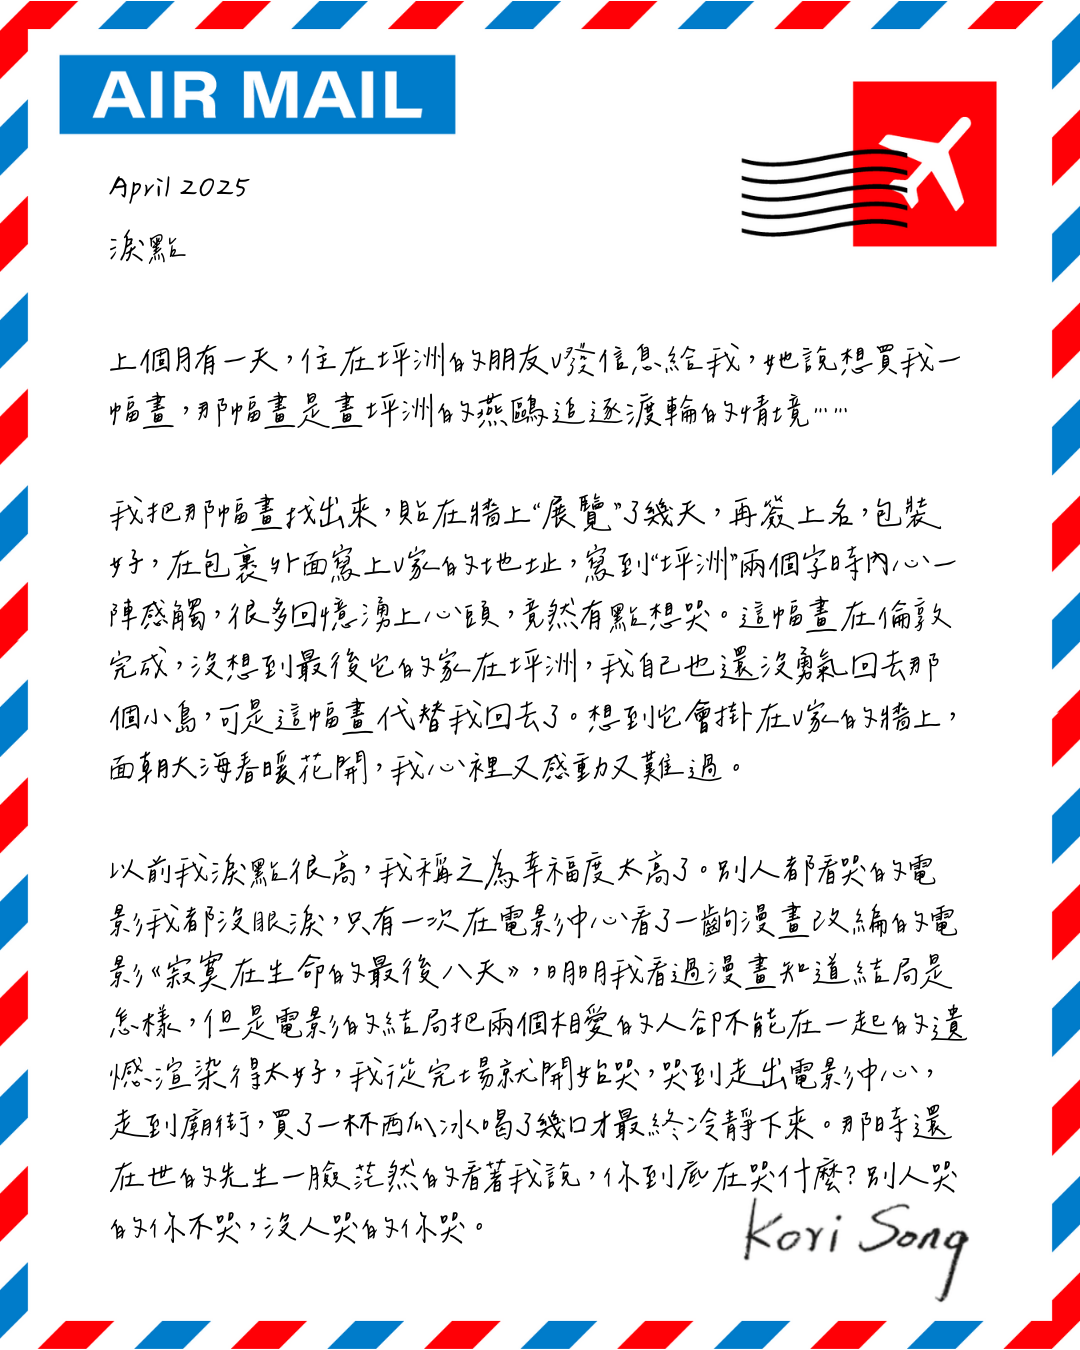 AIR MAIL
April 2025
淚點
上個月有一天，住在坪洲的朋友V發信息給我，她說想買我一
幅畫，那幅畫是畫坪洲的燕鷗追逐渡輪的情境……
我把那幅畫找出來，貼在牆上“展覽”了幾天，再簽上名，包裝
好，在包裹外面寫上V家的地址，寫到“坪洲”兩個字時內心一
陣感觸，很多回憶湧上心頭，竟然有點想哭。這幅畫在倫敦
完成，沒想到最後它的家在坪洲，我自己也還沒勇氣回去那
個小島，可是這幅畫代替我回去了。想到它會掛在V家的牆上，
面朝大海春暖花開，我心裡又感動又難過。
以前我淚點很高，我稱之為幸福度太高了。別人都看哭的電
影我都沒眼淚，只有一次在電影中心看了一齣漫畫改編的電
影《寂寞在生命的最後八天》，明明我看過漫畫知道結局是
怎樣，但是電影的結局把兩個相愛的人卻不能在一起的遺
憾渲染得太好，我從完場就開始哭，哭到走出電影中心，
走到廟街，買了一杯西瓜冰喝了幾口才最終冷靜下來。那時還
在世的先生一臉茫然的看著我說，你到底在哭什麼？別人哭
的你不哭，沒人哭的你哭。
Kori Song